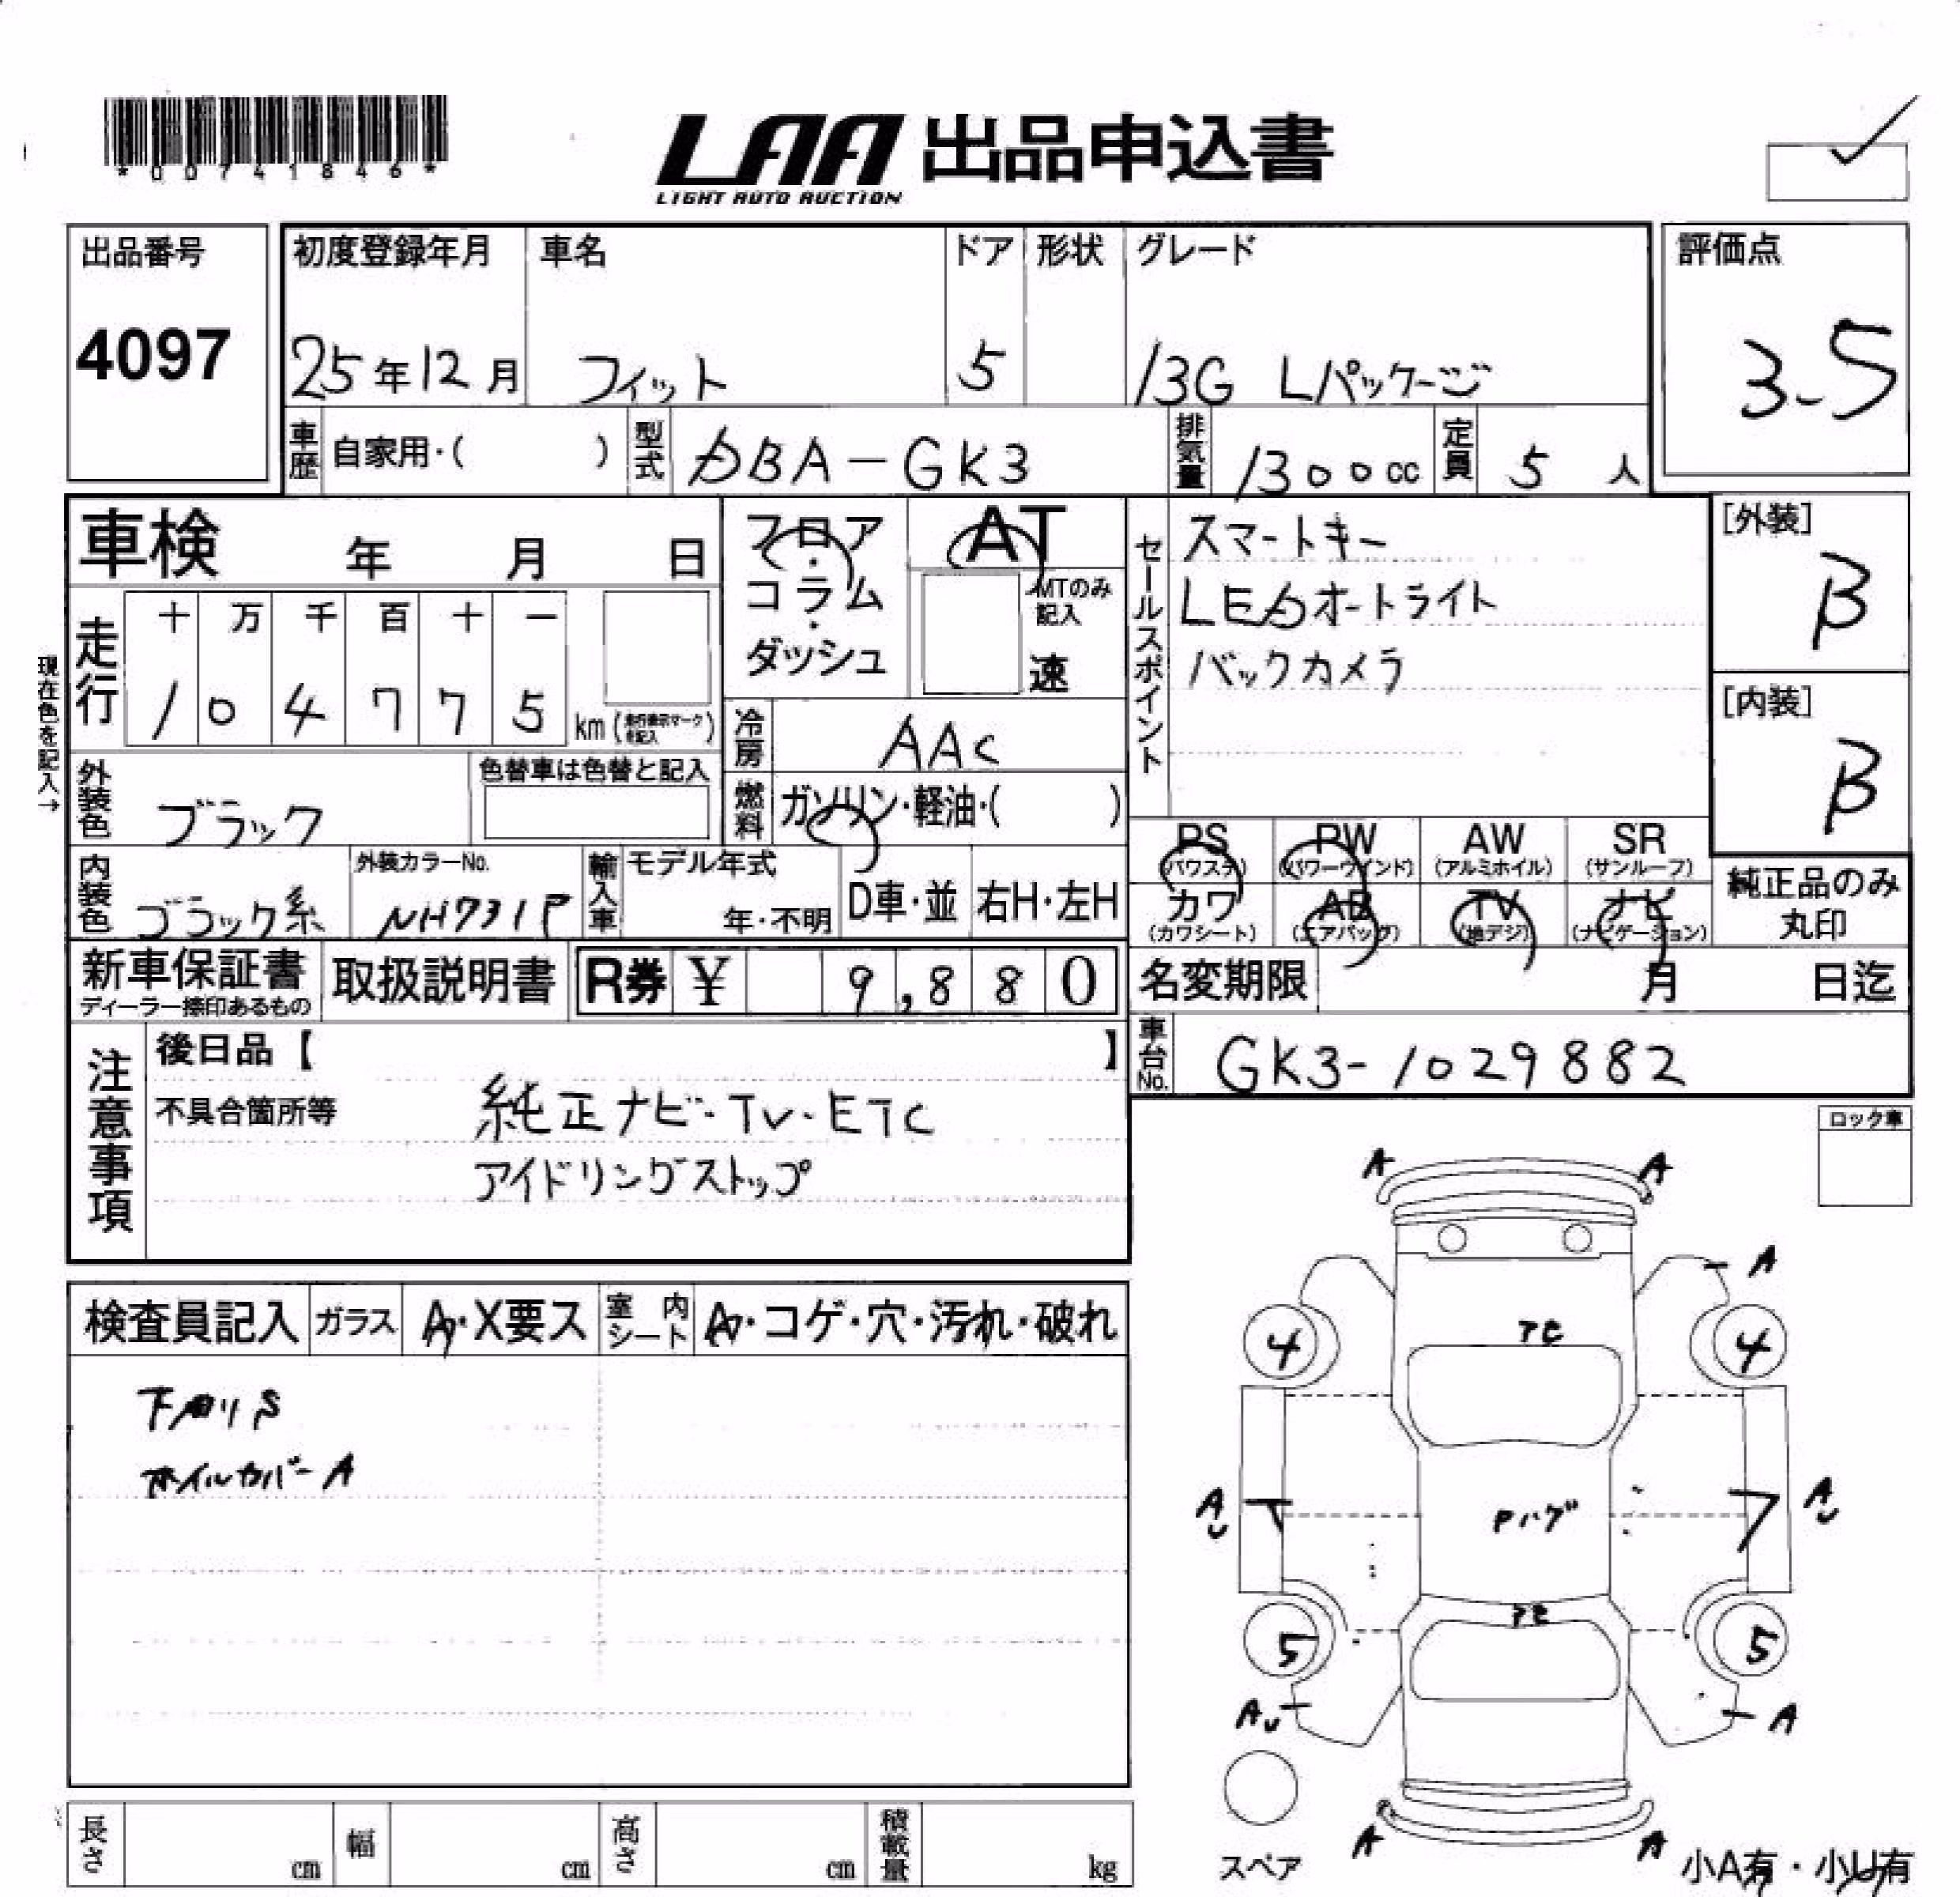 *00741846*
LAA 出品申込書
LIGHT AUTO AUCTION
出品番号
4097
初度登録年月 車名 ドア 形状 グレード
25年12月 フィット 5 13G Lパッケージ
評価点
3.5
車歴 自家用・( ) 型式 DBA-GK3 排気量 1300cc 定員 5人
車検 年 月 日
フロア・コラム・ダッシュ
AT
MTのみ記入
速
セールスポイント
スマートキー
LEDオートライト
バックカメラ
[外装]
B
[内装]
B
現在色を記入→
走行 十 万 千 百 十 一
1 0 4 7 7 5 km (走行表示マークを記入)
冷房 AAC
外装色 ブラック
色替車は色替と記入
燃料 ガソリン・軽油・( )
PS (パワステ) PW (パワーウインド) AW (アルミホイル) SR (サンルーフ)
カワ (カワシート) AB (エアバック) TV (地デジ) ナビ (ナビゲーション)
純正品のみ丸印
内装色 ブラック系
外装カラーNo. NH731P
輸入車 モデル年式 年・不明 D車・並 右H・左H
新車保証書 ディーラー捺印あるもの
取扱説明書
R券 ¥ 9,880
名変期限 月 日迄
車台No. GK3-1029882
注意事項
後日品【 】
不具合箇所等 純正ナビ・TV・ETC
アイドリングストップ
ロック車
検査員記入 ガラス A・X要ス 室内シート A・コゲ・穴・汚れ・破れ
下廻りS
ホイルカバーA
A A
A
アセ
4 4
AU AU
Pハゲ
アセ
5 5
AU A
スペア
A A
小A有・小U有
長さ cm 幅 cm 高さ cm 積載量 kg